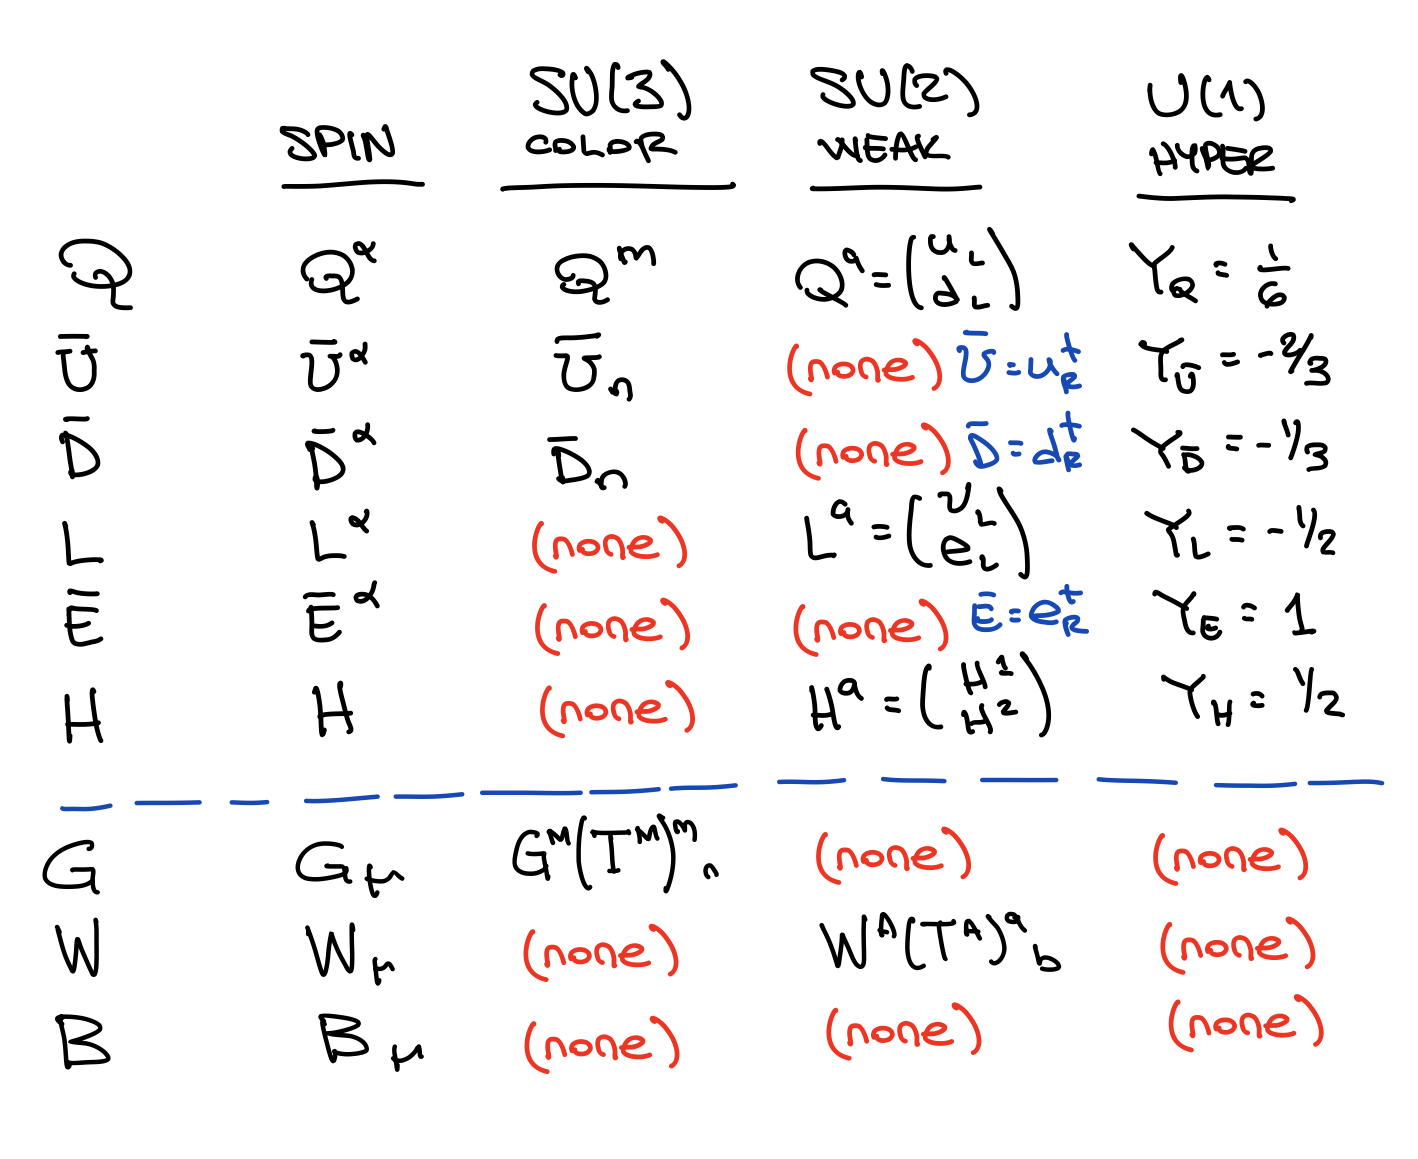 SPIN SU(3) COLOR SU(2) WEAK U(1) HYPER
Q Q^α Q^m Q^a = (u_L d_L) Y_Q = 1/6
Ū Ū^α Ū_n (none) Ū = u_R^† Y_Ū = -2/3
D̄ D̄^α D̄_n (none) D̄ = d_R^† Y_D̄ = -1/3
L L^α (none) L^a = (ν_L e_L) Y_L = -1/2
Ē Ē^α (none) (none) Ē = e_R^† Y_Ē = 1
H H (none) H^a = (H^1 H^2) Y_H = 1/2
G G_μ G^M(T^M)^m_n (none) (none)
W W_μ (none) W^A(T^A)^a_b (none)
B B_μ (none) (none) (none)